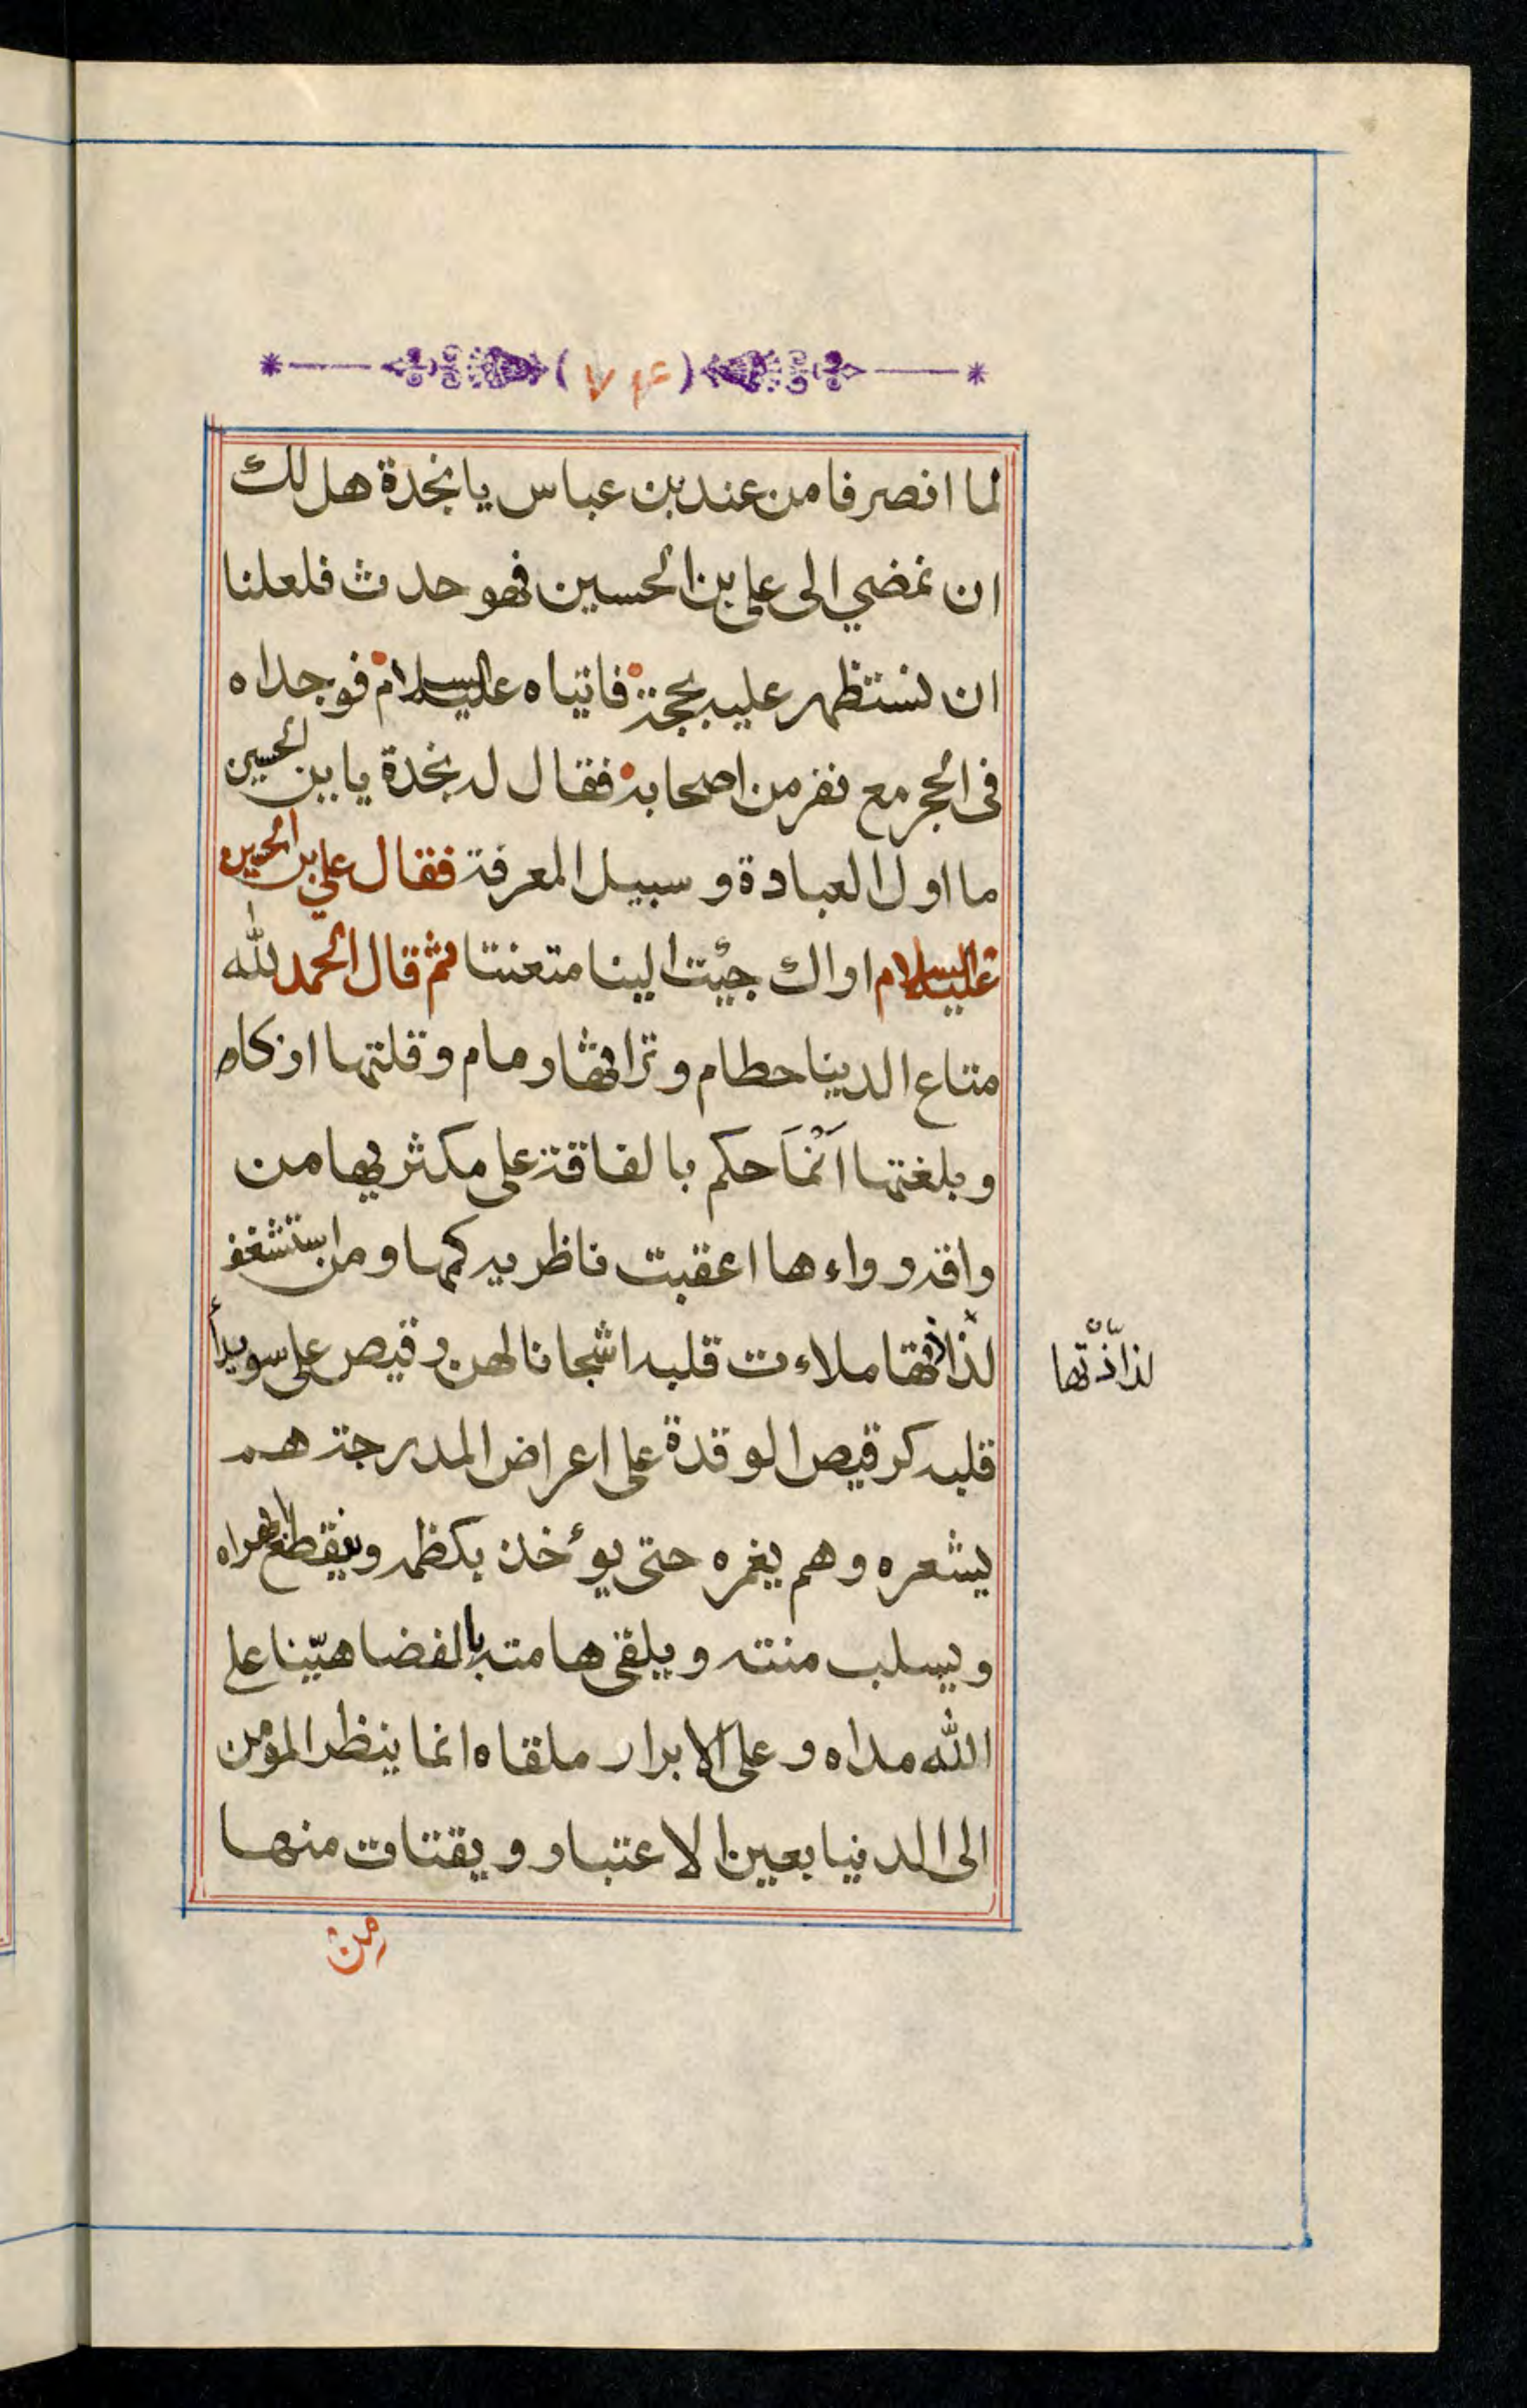 (۷۴)
لما انصرفا من عند بن عباس يا نجدة هل لك
ان نمضي الى علي بن الحسين فهو حدث فلعلنا
ان نستظهر عليه بحجة فاتياه عليه السلام فوجداه
في الحجر مع نفر من اصحابه فقال له نجدة يا بن الحسين
ما اول العبادة و سبيل المعرفة فقال علي بن الحسين
عليه السلام اراك جئت الينا متعنتا ثم قال الحمد لله
متاع الدينا حطام و تراثها رمام و قلتها ازكاه
و بلغتها اَنْمَاَ حكم بالفاقة على مكثر بها من
راقه رواءها اعقبت ناظريه كمها و من استشغف
لذاذتها ملاءت قلبه اشجانا لهن رقيص على سويدأ
قلبه كرقيص الوقدة على اعراض المدرجة هم
يشعره و هم يغمره حتى يوأخذ بكظمه و ينقطع ابهراه
و يسلب منته و يلقى هامته بالفضا هيّنا على
الله مداه و على الابرار ملقاه انما ينظر المؤمن
الى الدنيا بعين الاعتبار و يقتات منها
لذاذّتها
من